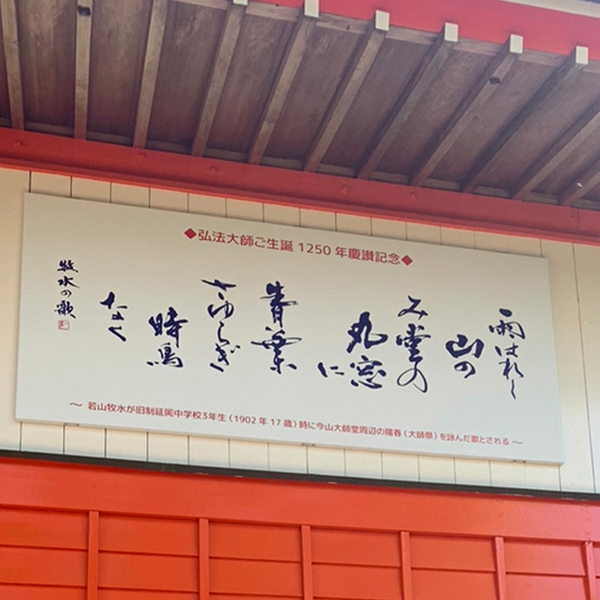 ◆弘法大師ご生誕1250年慶讃記念◆
雨はれし
山の
み堂の
丸窓
に
青葉
さゆらぎ
時鳥
なく
牧水の歌
〜 若山牧水が旧制延岡中学校3年生(1902年17歳)時に今山大師堂周辺の陽春(大師祭)を詠んだ歌とされる 〜